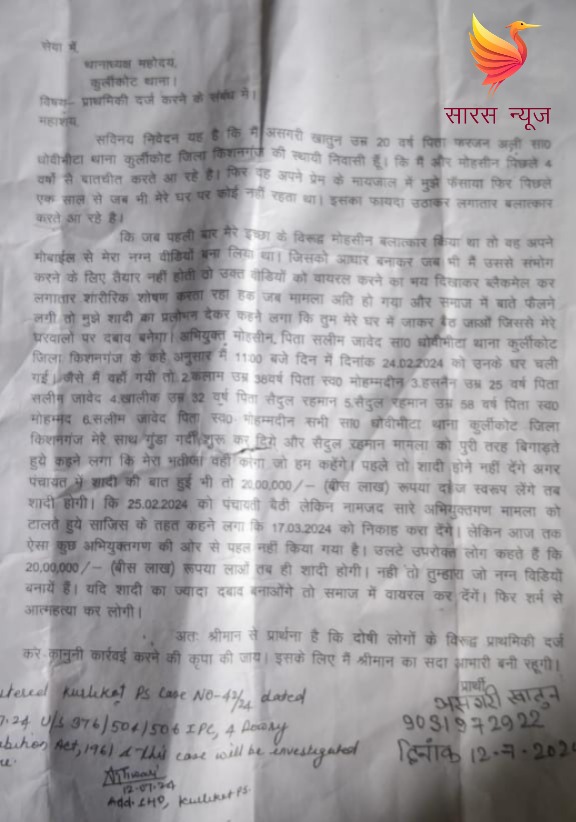 सारस न्यूज
सेवा में,
थानाध्यक्ष महोदय,
कुर्लीकोट थाना।
विषय:- प्राथमिकी दर्ज करने के संबंध में।
महाशय,
सविनय निवेदन यह है कि मैं असगरी खातुन उम्र 20 वर्ष पिता फरजन अली सा0
धोवीभीटा थाना कुर्लीकोट जिला किशनगंज की स्थायी निवासी हूँ। कि मैं और मोहसीन पिछले 4
वर्षों से बातचीत करते आ रहे है। फिर वह अपने प्रेम के मायजाल में मुझे फँसाया फिर पिछले
एक साल से जब भी मेरे घर पर कोई नहीं रहता था। इसका फायदा उठाकर लगातार बलात्कार
करते आ रहे है।
कि जब पहली बार मेरे इच्छा के विरुद्ध मोहसीन बलात्कार किया था तो वह अपने
मोबाईल से मेरा नग्न वीडियों बना लिया था। जिसको आधार बनाकर जब भी मैं उससे संभोग
करने के लिए तैयार नहीं होती तो उक्त वीडियों को वायरल करने का भय दिखाकर ब्लैकमेल कर
लगातार शारीरिक शोषण करता रहा हक जब मामला अति हो गया और समाज में बाते फैलने
लगी तो मुझे शादी का प्रलोभन देकर कहने लगा कि तुम मेरे घर में जाकर बैठ जाओं जिससे मेरे
घरवालो पर दबाव बनेगा। अभियुक्त मोहसीन, पिता सलीम जावेद सा0 धोवीभीटा थाना कुर्लीकोट
जिला किशनगंज के कहे अनुसार मैं 11:00 बजे दिन में दिनांक 24.02.2024 को उनके घर चली
गई। जैसे मैं वहाँ गयी तो 2.कलाम उम्र 38वर्ष पिता स्व0 मोहम्मदीन 3.हसनैन उम्र 25 वर्ष पिता
सलीम जावेद 4.खालीक उम्र 32 वर्ष पिता सैदुल रहमान 5.सैदुल रहमान उम्र 58 वर्ष पिता स्व0
मोहम्मद 6.सलीम जावेद पिता स्व0 मोहम्मदीन सभी सा0 धोवीभीटा थाना कुर्लीकोट जिला
किशनगंज मेरे साथ गुंडा गर्दी शुरू कर दिये और सैदुल रहमान मामला को पुरी तरह बिगाड़ते
हुये कहने लगा कि मेरा भतीजा वही करेगा जो हम कहेंगे। पहले तो शादी होने नहीं देंगे अगर
पंचायत में शादी की बात हुई भी तो 20,00,000/– (बीस लाख) रूपया दहेज स्वरूप लेंगे तब
शादी होगी। कि 25.02.2024 को पंचायती बैठी लेकिन नामजद सारे अभियुक्तगण मामला को
टालते हुये साजिस के तहत कहने लगा कि 17.03.2024 को निकाह करा देंगे। लेकिन आज तक
ऐसा कुछ अभियुक्तगण की ओर से पहल नहीं किया गया है। उलटे उपरोक्त लोग कहते हैं कि
20,00,000/– (बीस लाख) रूपया लाओं तब ही शादी होगी। नही तो तुम्हारा जो नग्न विडियो
बनायें हैं। यदि शादी का ज्यादा दबाव बनाओंगे तो समाज में वायरल कर देंगें। फिर शर्म से
आत्महत्या कर लोगी।
अतः श्रीमान से प्रार्थना है कि दोषी लोगों के विरूद्ध प्राथमिकी दर्ज
कर कानुनी कार्रवई करने की कृपा की जाय। इसके लिए मैं श्रीमान का सदा आभारी बनी रहूगी।
प्रार्थी
असगरी खातुन
9031972922
दिनांक 12-7-202
tered Kurlikot PS Case NO-42/24 dated
7.24 U/S 376/504/506 IPC, 4 Dowry
bition Act, 1961 & This case will be investigated
12.07.24
Add. SHO, Kurlikot PS.